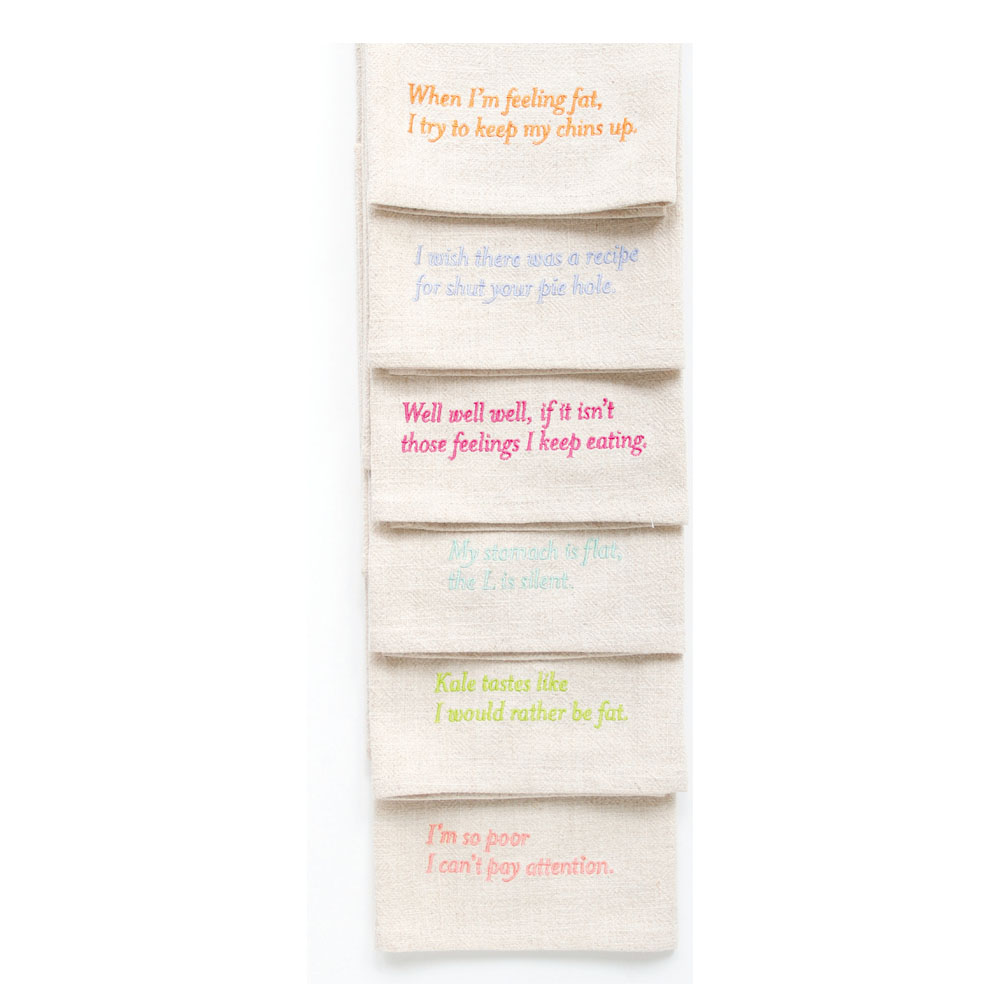 When I'm feeling fat,
I try to keep my chins up.
I wish there was a recipe
for shut your pie hole.
Well well well, if it isn't
those feelings I keep eating.
My stomach is flat,
the L is silent.
Kale tastes like
I would rather be fat.
I'm so poor
I can't pay attention.